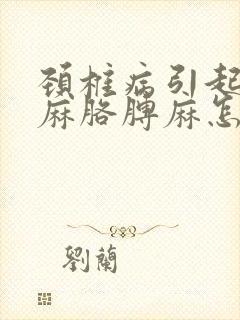 頚椎病引起
麻胳脾麻怎
劉蘭